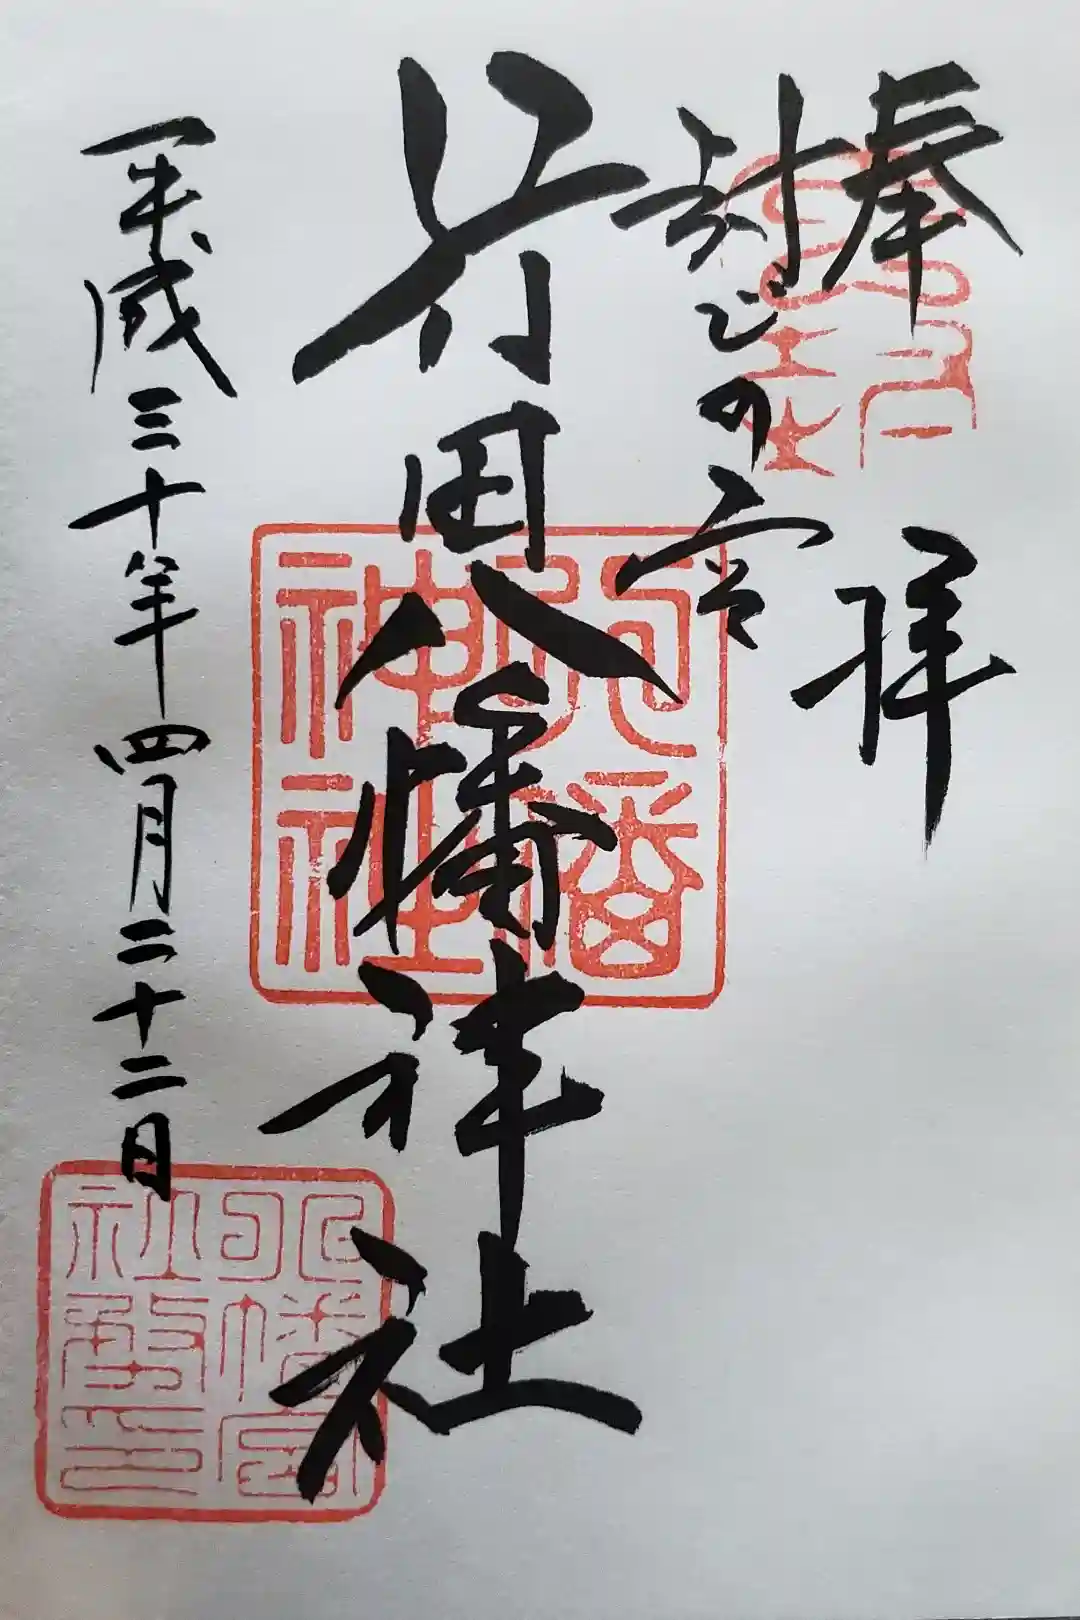 奉拝
封じの宮
行田八幡神社
八幡神社
平成三十年四月二十二日